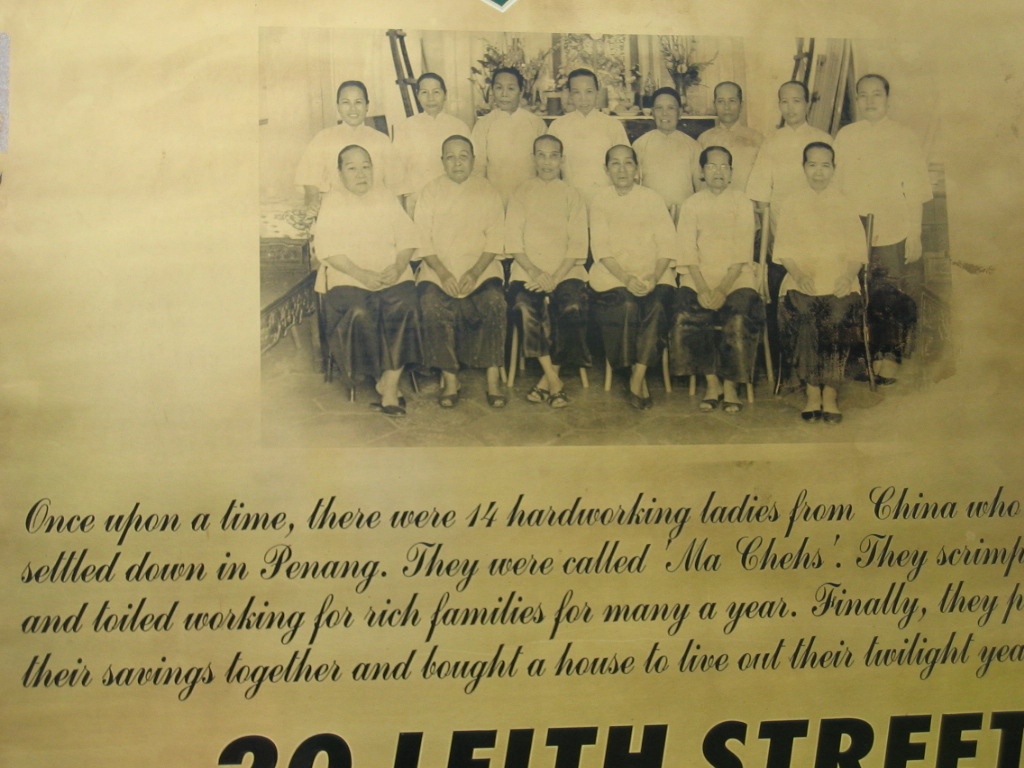 Once upon a time, there were 14 hardworking ladies from China who
settled down in Penang. They were called 'Ma Chehs'. They
and toiled working for rich families for many a year. Finally, they
their savings together and bought a house to live out their twilight
20 LEITH STREET